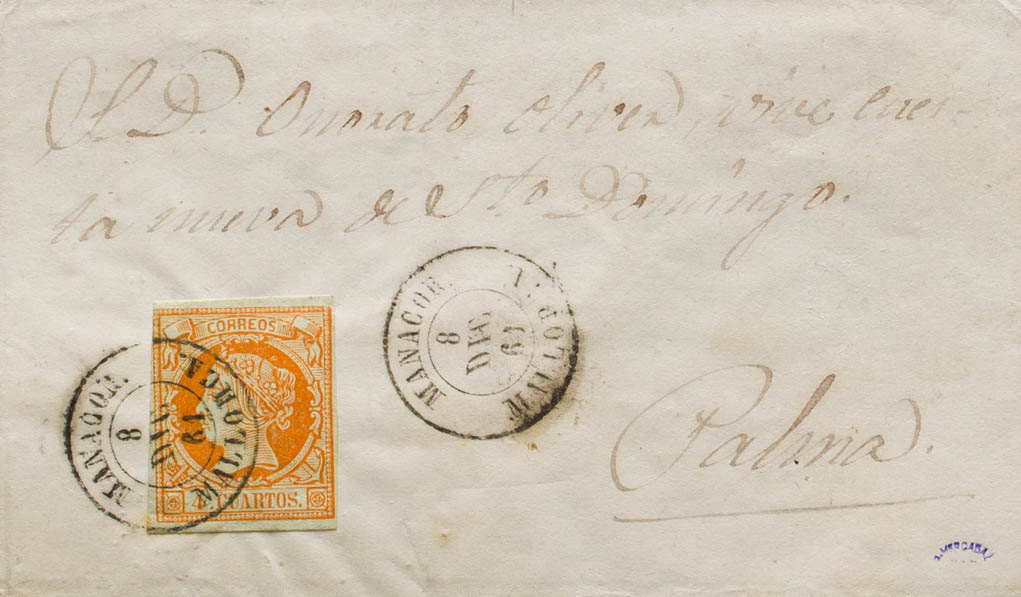 S. D. Onorato Oliver, vive cues-
ta nueva de Sto Domingo.
MANACOR.
8
DIC
61
MALLORCA.
CORREOS
4 CUARTOS.
MANACOR.
8
DIC
61
MALLORCA.
Palma.